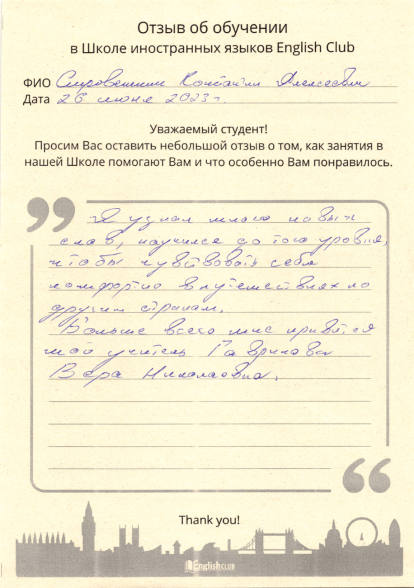 Отзыв об обучении
в Школе иностранных языков English Club
ФИО Алексеевич
Дата 26 июня 2023 г.
Уважаемый студент!
Просим Вас оставить небольшой отзыв о том, как занятия в
нашей Школе помогают Вам и что особенно Вам понравилось.
Я узнал много новых
слов, научился до того уровня,
чтобы чувствовать себя
комфортно в путешествиях по
другим странам.
Больше всего мне нравится
мой учитель Гаврикова
Вера Николаевна.
Thank you!
English CLUB